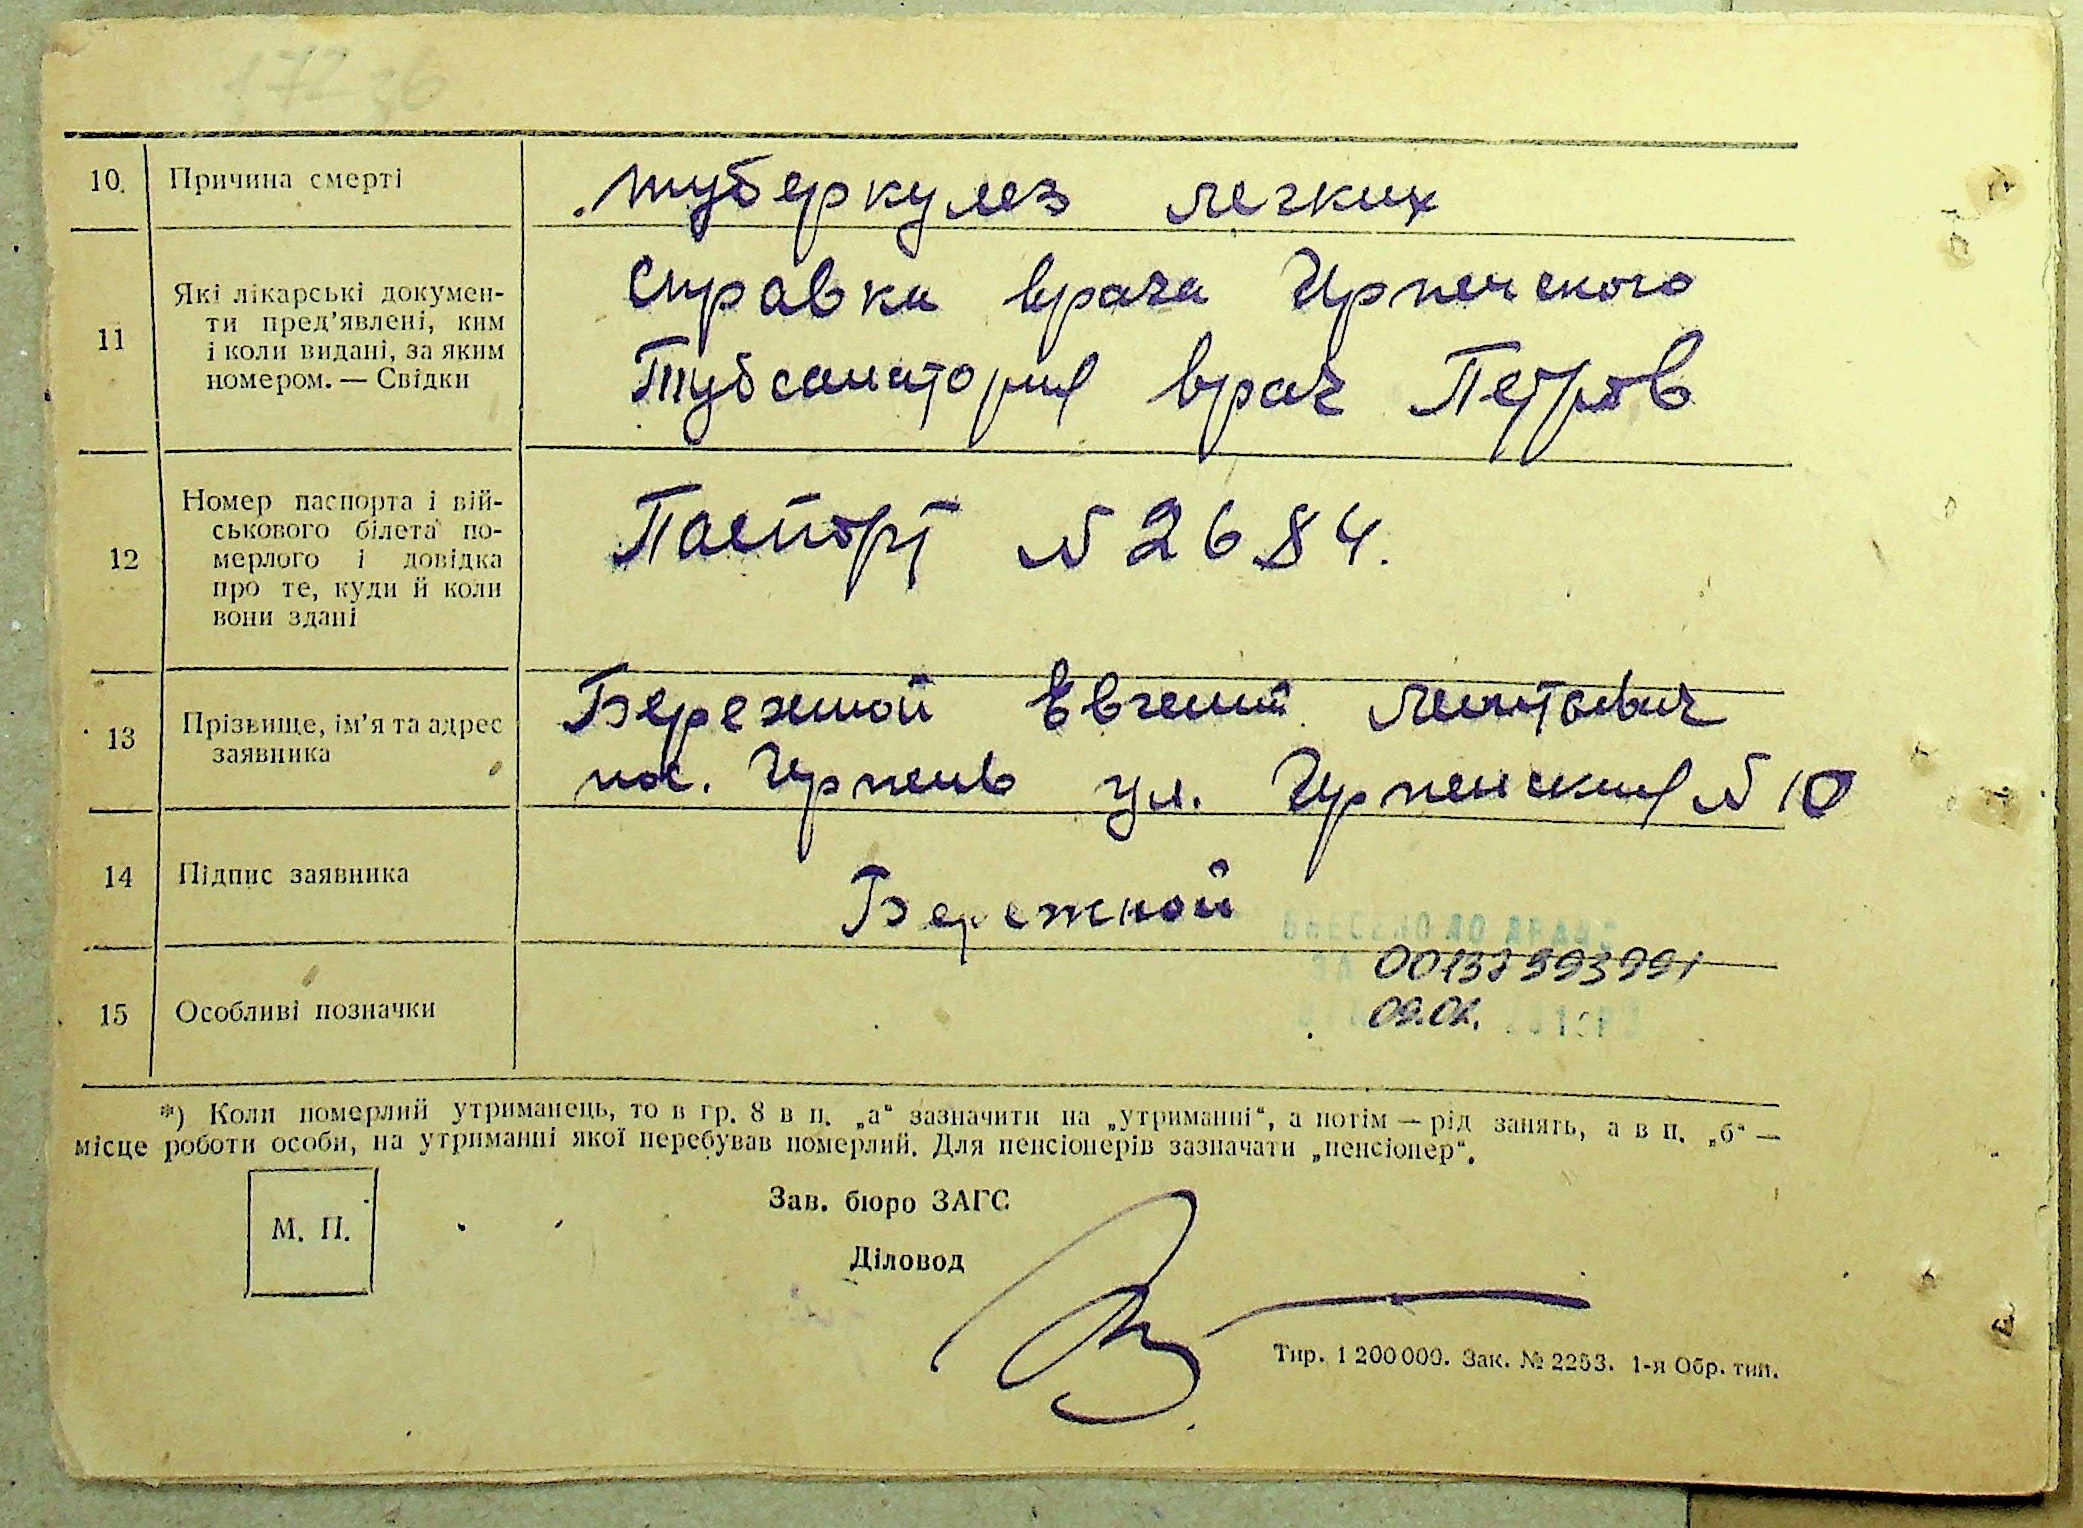 10. Причина смерті
туберкулез легких
11 Які лікарські докумен-
ти пред'явлені, ким
і коли видані, за яким
номером. — Свідки
справка врача Ирпенского
Тубсанатория врач Петров
12 Номер паспорта і вій-
ськового білета по-
мерлого і довідка
про те, куди й коли
вони здані
Паспорт N 2684.
13 Прізвище, ім'я та адрес
заявника
Бережной Евгений Леонтьевич
пос. Ирпень ул. Ирпенская N 10
14 Підпис заявника
Бережной
15 Особливі позначки
ВНЕСЕНО ДО ДРАЦС
ЗА
*) Коли померлий утриманець, то в гр. 8 в п. „а“ зазначити на „утриманні“, а потім — рід занять, а в п. „б“ —
місце роботи особи, на утриманні якої перебував померлий. Для пенсіонерів зазначати „пенсіонер“.
М. П.
Зав. бюро ЗАГС
Діловод
Тир. 1 200 000. Зак. № 2253. 1-я Обр. тип.